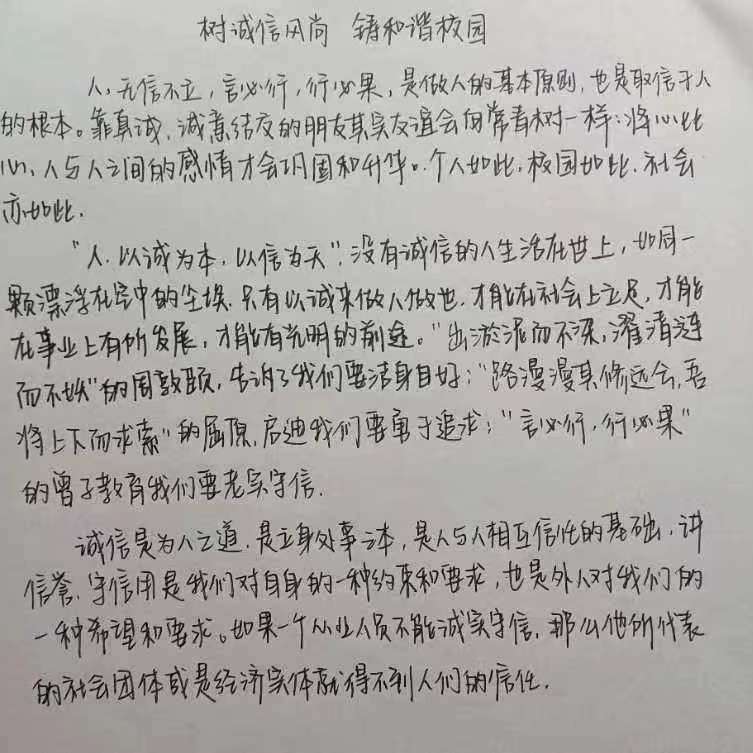 树诚信风尚 铸和谐校园
人,无信不立,言必行,行必果,是做人的基本原则,也是取信于人
的根本。靠真诚、诚意结交的朋友其实友谊会向常青树一样:将心比
心、人与人之间的感情才会巩固和升华。个人如此.校园如此.社会
亦如此.
"人.以诚为本,以信为天".没有诚信的人生活在世上,如同一
颗漂浮在空中的尘埃.只有以诚来做人做也.才能在社会上立足,才能
在事业上有所发展,才能有光明的前途。"出淤泥而不染,濯清涟
而不妖"的周敦颐,告诉了我们要洁身自好;"路漫漫其修远会,吾
将上下而求索"的屈原,启迪我们要勇于追求;"言必行,行必果"
的曾子教育我们要老实守信.
诚信是为人之道.是立身处事之本,是人与人相互信任的基础.讲
信誉.守信用是我们对自身的一种约束和要求,也是外人对我们的
一种希望和要求。如果一个从业人员不能诚实守信,那么他所代表
的社会团体或是经济实体就得不到人们的信任.